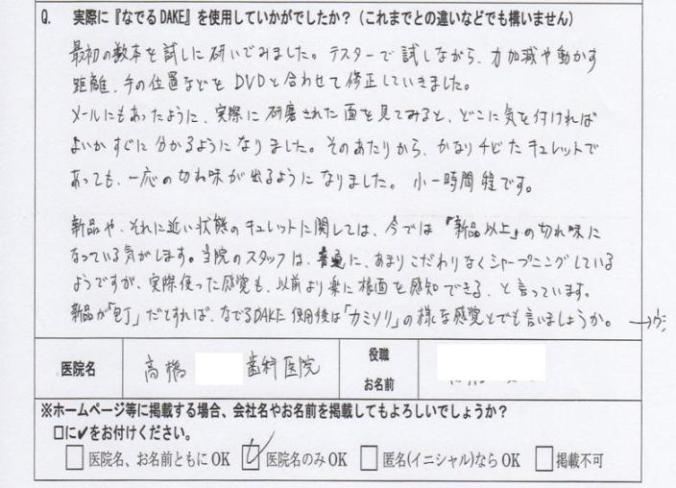 Q. 実際に『なでるDAKE』を使用していかがでしたか？（これまでとの違いなどでも構いません）
最初の数本を試しに研いでみました。テスターで試しながら、力加減や動かす
距離、手の位置などをDVDと合わせて修正していきました。
メールにもあったように、実際に研磨された面を見てみると、どこに気を付ければ
よいかすぐに分かるようになりました。そのあたりから、かなりチビたキュレットで
あっても、一応の切れ味が出るようになりました。小一時間程です。
新品や、それに近い状態のキュレットに関しては、今では『新品以上』の切れ味に
なっている気がします。当院のスタッフは、普通に、あまりこだわりなくシャープニングしている
ようですが、実際使った感覚も、以前より楽に根面を感知できる、と言っています。
新品が「包丁」だとすれば、なでるDAKE使用後は「カミソリ」の様な感覚とでも言いましょうか。
医院名 高橋 歯科医院 役職
お名前
※ホームページ等に掲載する場合、会社名やお名前を掲載してもよろしいでしょうか？
□に✔をお付けください。
□医院名、お名前ともにOK ☑医院名のみOK □匿名(イニシャル)ならOK □掲載不可